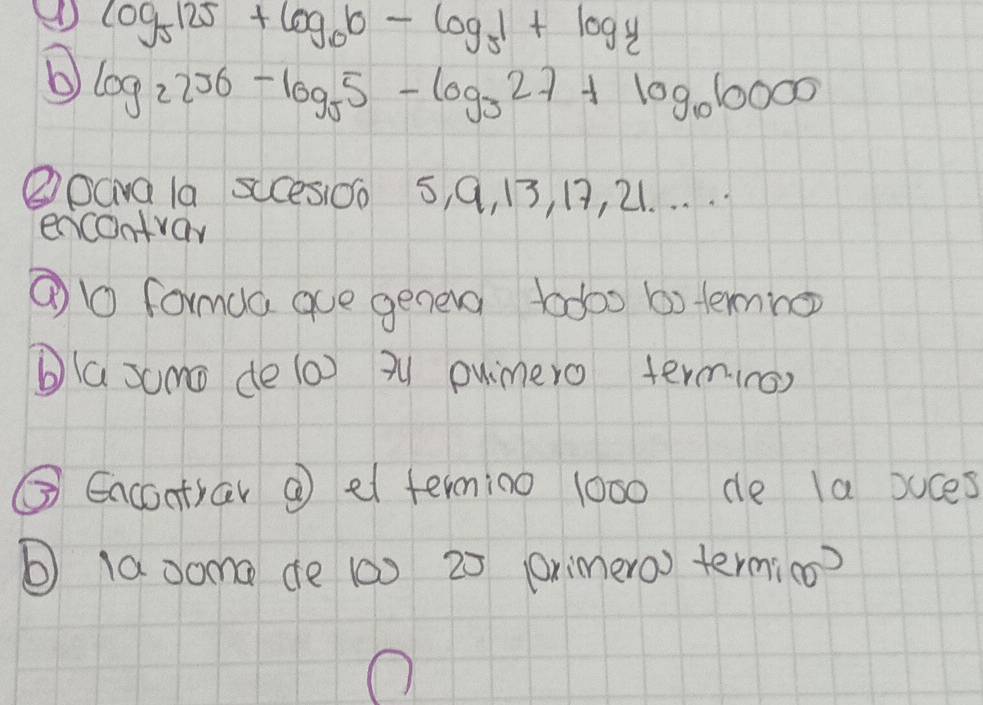 a) log₅125 + log₆6 - log₅1 + log
b) log₂256 - log₅5 - log₃27 + log₁₀10000
② para la sucesion 5, 9, 13, 17, 21.....
encontrar
a) la formula que genera todos los termino
b) la suma de los primero terminos
③ Encontrar a) el termino 1000 de la suces
b) la soma de los 25 primeros terminos